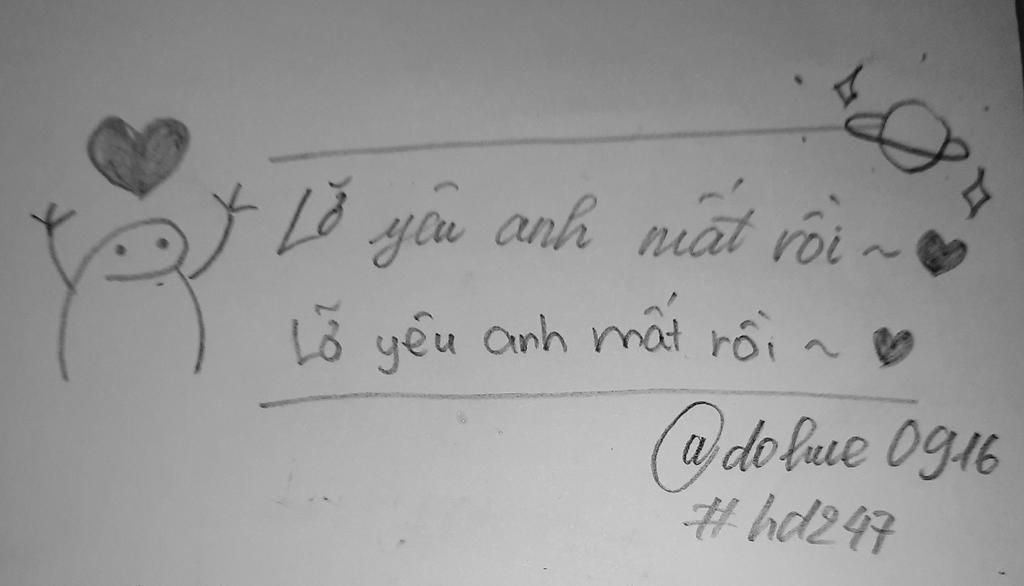 Lỡ yêu anh mất rồi ~
Lỡ yêu anh mất rồi ~
@dohue 0916
#hd247